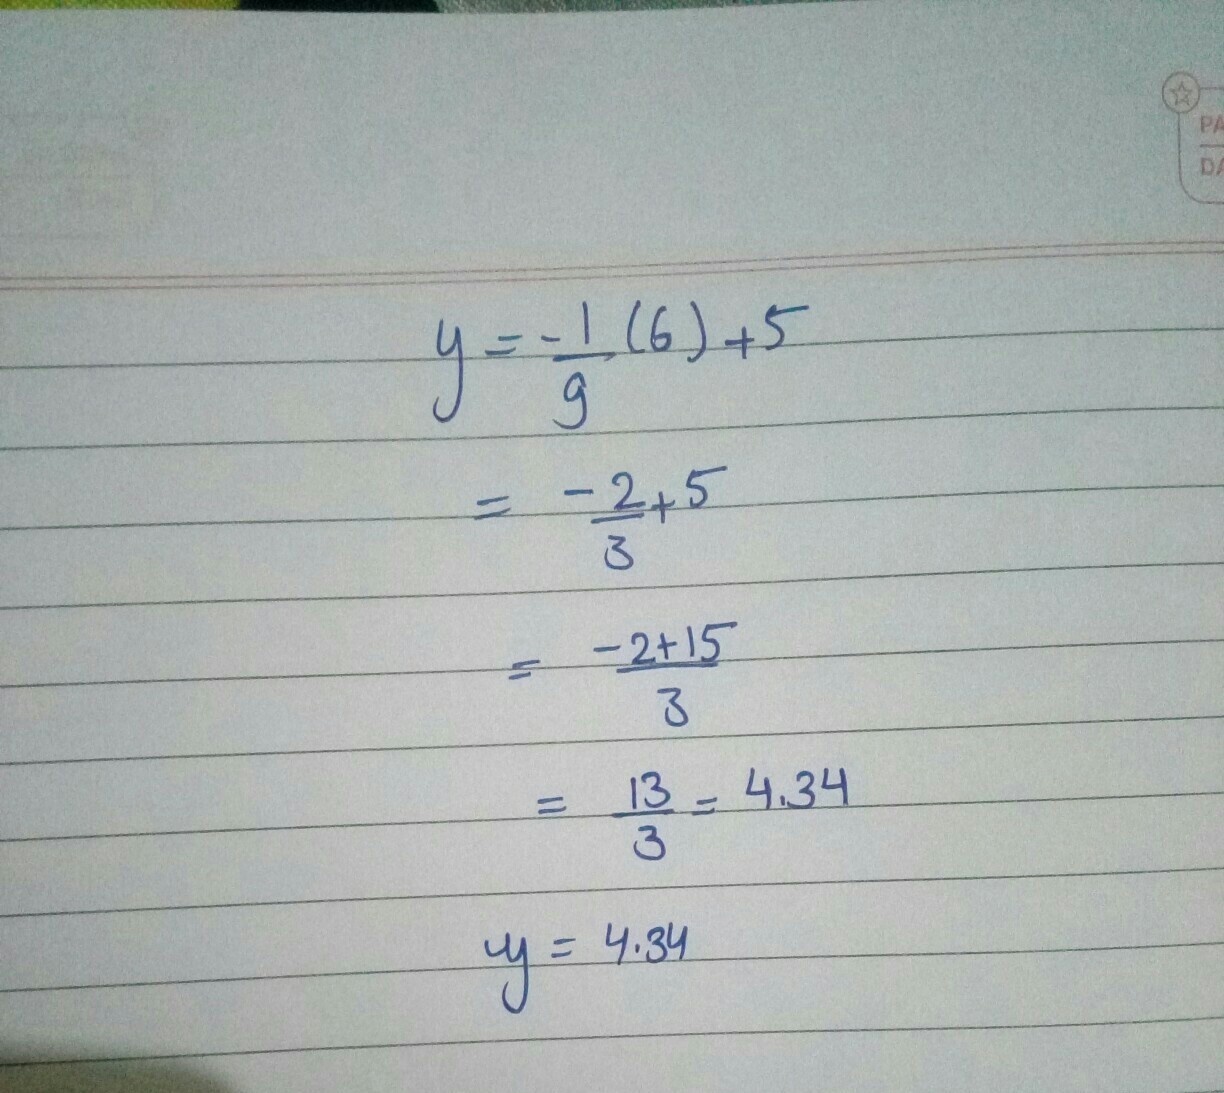 PA
DA
y = -1/9 (6) + 5
= -2/3 + 5
= -2+15/3
= 13/3 = 4.34
y = 4.34